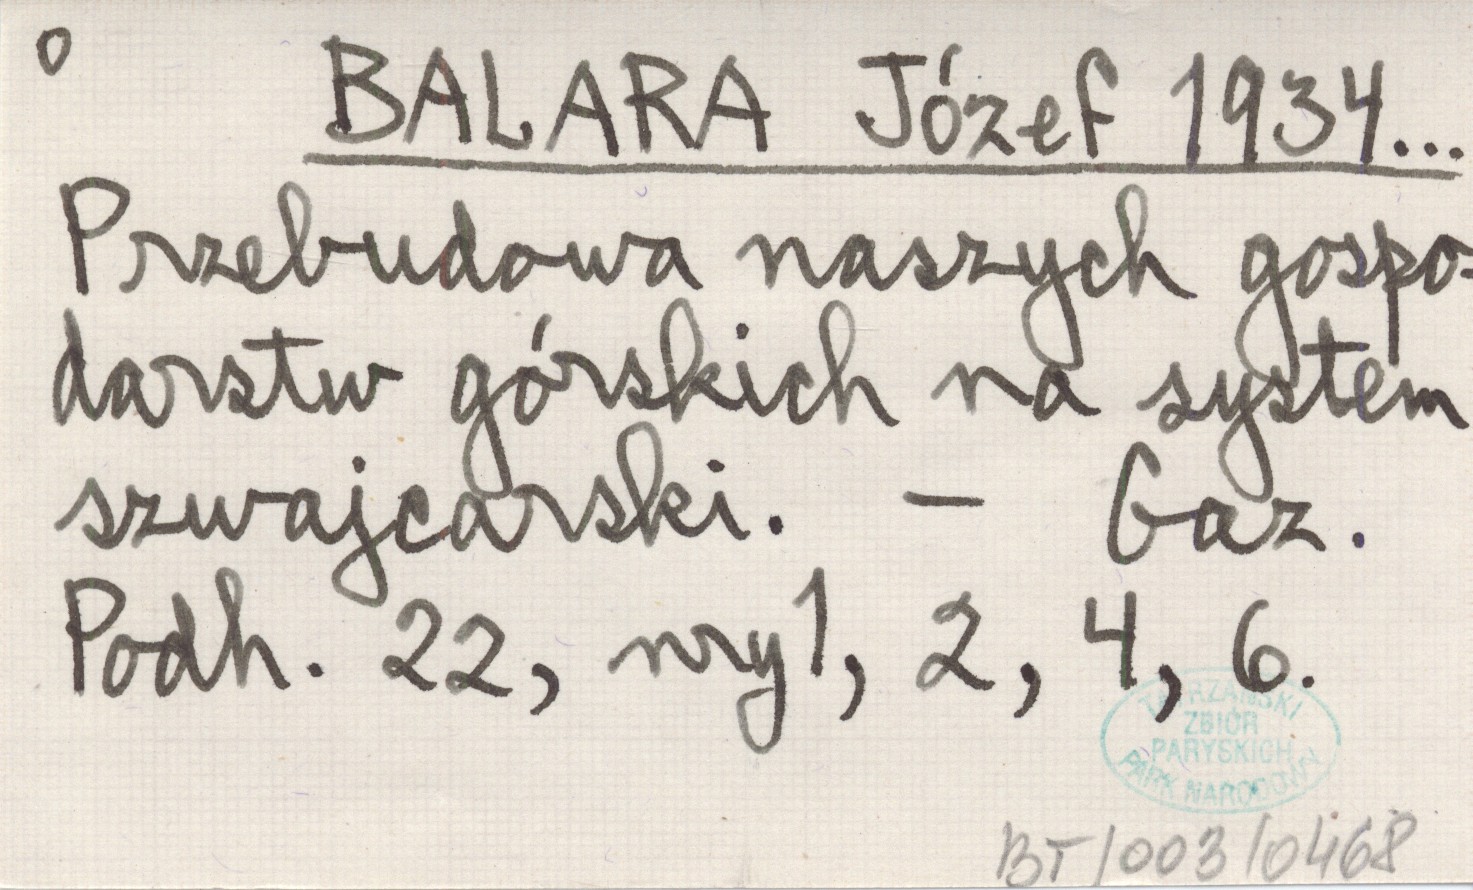 o
BALARA Józef 1934...
Przebudowa naszych gospo-
darstw górskich na system
szwajcarski. – Gaz.
Podh. 22, nry 1, 2, 4, 6.
TATRZAŃSKI
ZBIÓR
PARYSKICH
PARK NARODOWY
BT/003/0468